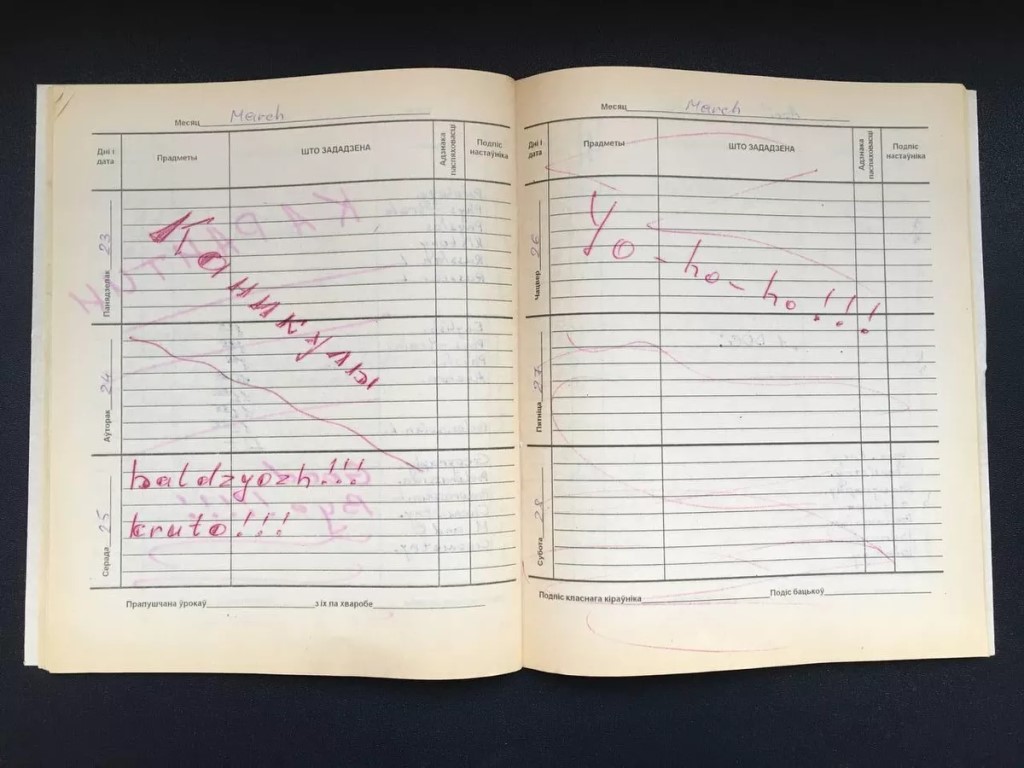 Месяц March
Дні і дата
Прадметы
ШТО ЗАДАДЗЕНА
Адзнака паспяховасці
Подпіс настаўніка
Панядзелак 23
КАНИКУЛЫ
Аўторак 24
Серада 25
baldzyozh!!!
kruto!!!
Прапушчана ўрокаў
з іх па хваробе
Месяц March
Дні і дата
Прадметы
ШТО ЗАДАДЗЕНА
Адзнака паспяховасці
Подпіс настаўніка
Чацвер 26
Yo-ho-ho!!!
Пятніца 27
Субота 28
Подпіс класнага кіраўніка
Подіс бацькоў